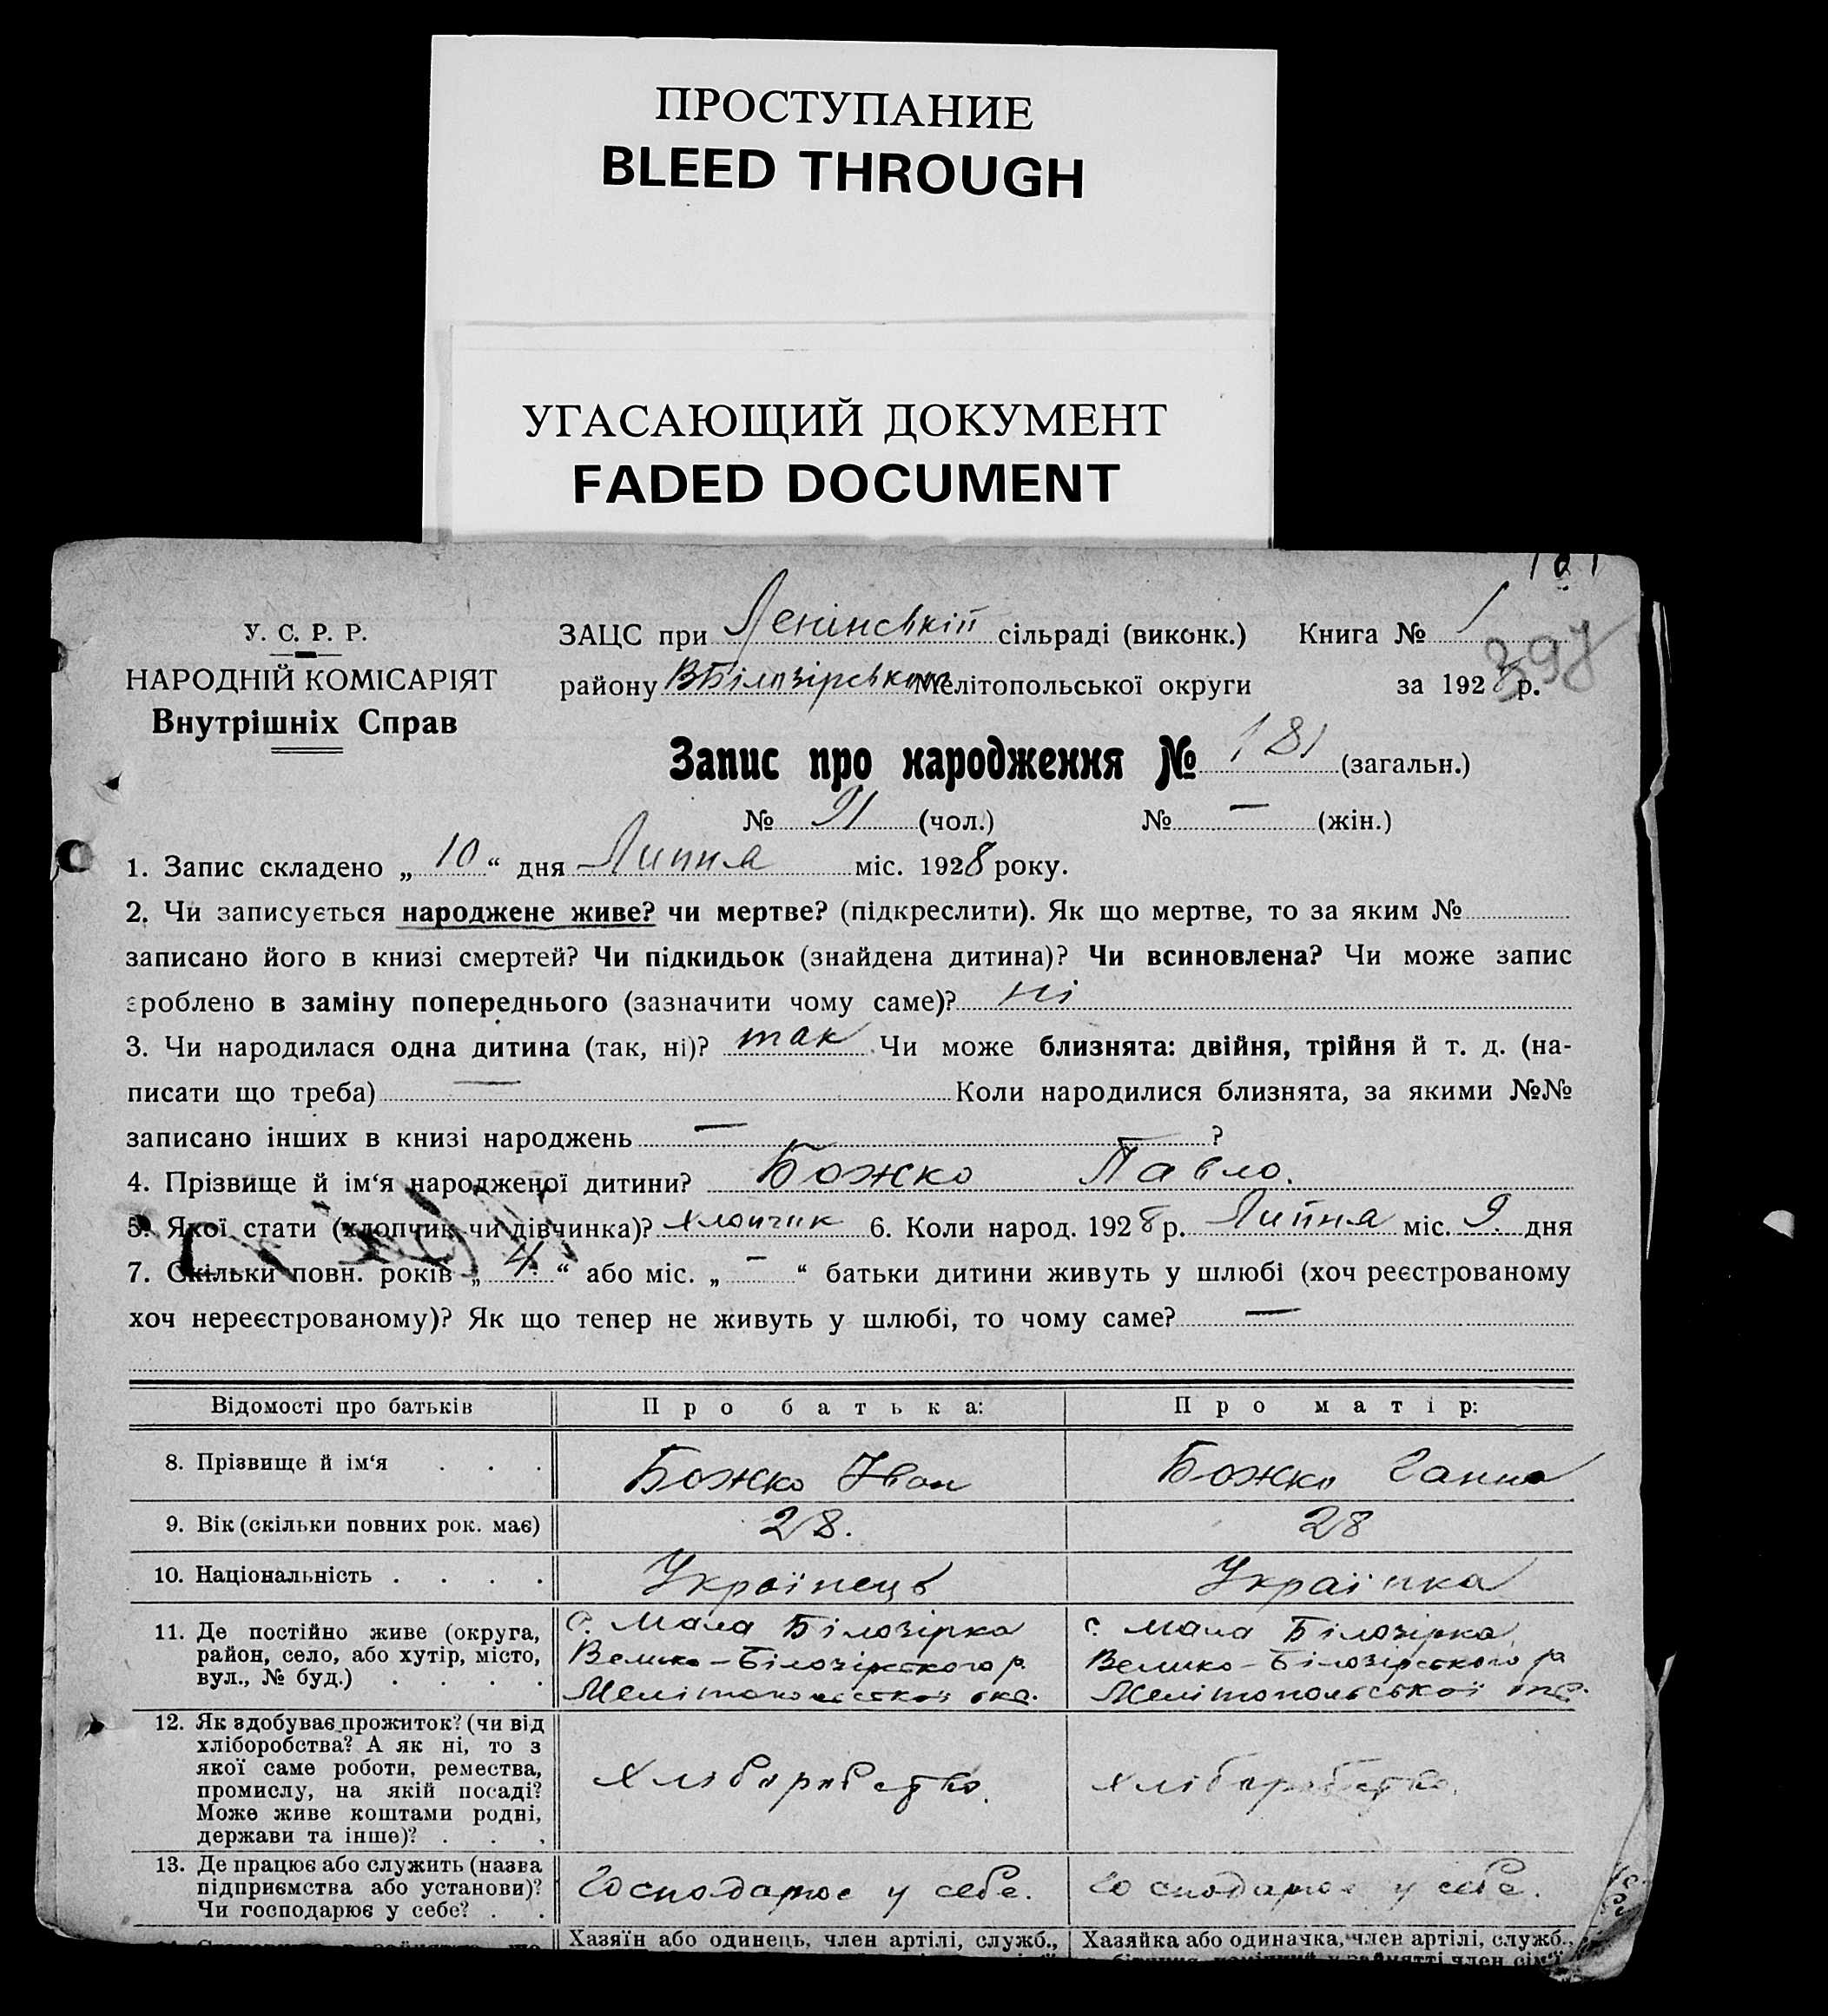 ПРОСТУПАНИЕ
BLEED THROUGH
УГАСАЮЩИЙ ДОКУМЕНТ
FADED DOCUMENT
181
У. С. Р. Р.
НАРОДНІЙ КОМІСАРІЯТ
Внутрішніх Справ
ЗАЦС при Ленінській сільраді (виконк.) Книга № 1
397
району ВБілозірського Мелітопольської округи за 1928 р.
Запис про народження № 181 (загальн.)
№ 91 (чол.) № — (жін.)
1. Запис складено „ 10 “ дня Липня міс. 1928 року.
2. Чи записується народжене живе? чи мертве? (підкреслити). Як що мертве, то за яким №
записано його в книзі смертей? Чи підкидьок (знайдена дитина)? Чи всиновлена? Чи може запис
зроблено в заміну попереднього (зазначити чому саме)? ні
3. Чи народилася одна дитина (так, ні)? так Чи може близнята: двійня, трійня й т. д. (на-
писати що треба) — Коли народилися близнята, за якими №№
записано інших в книзі народжень — ?
4. Прізвище й ім‘я народженої дитини? Божко Павло.
5. Якої стати (хлопчик чи дівчинка)? хлопчик 6. Коли народ. 1928 р. Липня міс. 9. дня
7. Скільки повн. років „ 4. “ або міс. „ — “ батьки дитини живуть у шлюбі (хоч реєстрованому
хоч нереєстрованому)? Як що тепер не живуть у шлюбі, то чому саме? —
Відомості про батьків Про батька: Про матір:
8. Прізвище й ім‘я . . . Божко Іван Божко Ганна
9. Вік (скільки повних рок. має) 28. 28
10. Національність . . . . Українець Українка
11. Де постійно живе (округа,
район, село, або хутір, місто,
вул., № буд.) . . . .
с. Мала Білозірка
Велико-Білозірського р.
Мелітопольської окр.
с. Мала Білозірка
Велико-Білозірського р
Мелітопольської окр.
12. Як здобуває прожиток? (чи від
хліборобства? А як ні, то з
якої саме роботи, ремества,
промислу, на якій посаді?
Може живе коштами родні,
держави та інше)? . . .
Хліборобство.
хліборобство.
13. Де працює або служить (назва
підприємства або установи)?
Чи господарює у себе? . .
Господарює у себе.
Господарює у себе.
Хазяїн або одинець, член артілі, служб.,
Хазяйка або одиначка, член артілі, служб.,